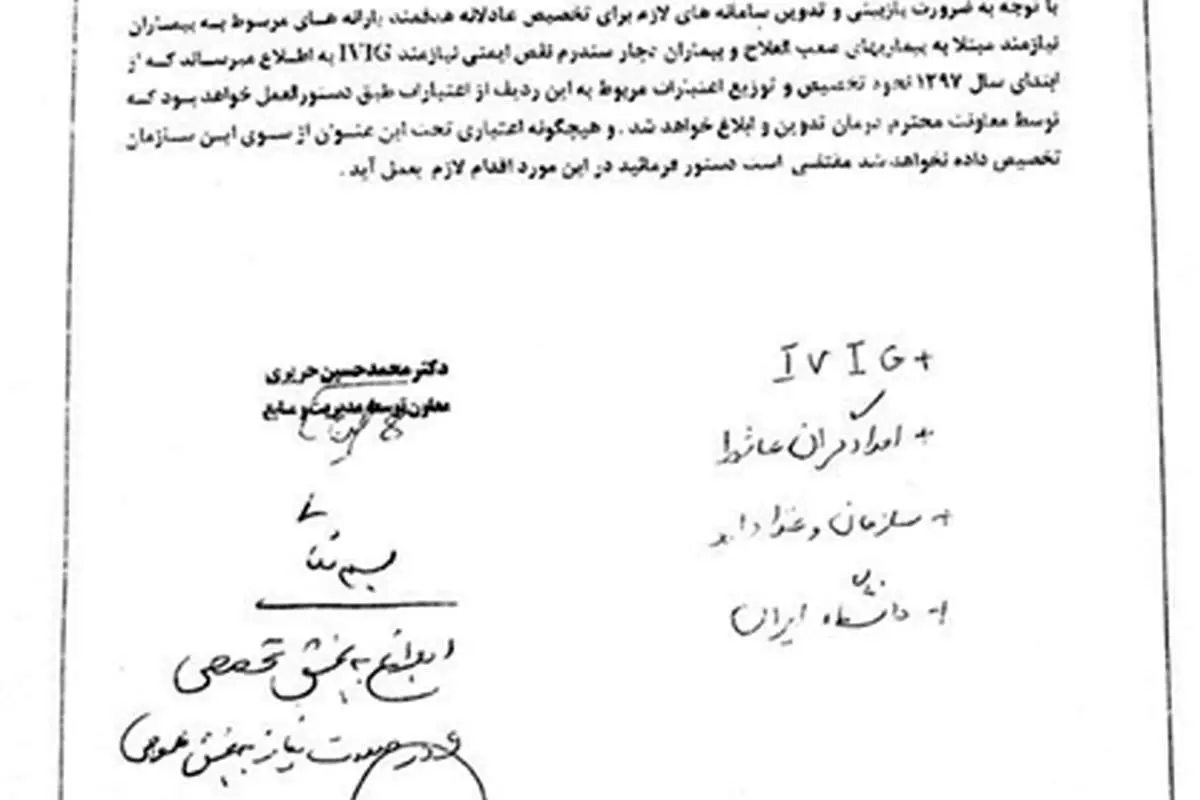 با توجه به ضرورت بازبینی و تدوین سامانه های لازم برای تخصیص عادلانه هدفمند یارانه های مربوط به بیماران
نیازمند مبتلا به بیماریهای صعب العلاج و بیماران دچار سندرم نقص ایمنی نیازمند IVIG به اطلاع میرساند که از
ابتدای سال ۱۳۹۷ نحوه تخصیص و توزیع اعتبارات مربوط به این ردیف از اعتبارات طبق دستورالعمل خواهد بود که
توسط معاونت محترم درمان تدوین و ابلاغ خواهد شد . و هیچگونه اعتباری تحت این عنوان از سوی این سازمان
تخصیص داده نخواهد شد مقتضی است دستور فرمائید در این مورد اقدام لازم بعمل آید .
IVIG +
دکتر محمدحسین حریری
معاون توسعه مدیریت و منابع
+ امدادگران عاشورا
+ سازمان و غذا دارو
+ دانشگاه ایران
به بخش تخصصی
و در صورت نیاز بخش عمومی